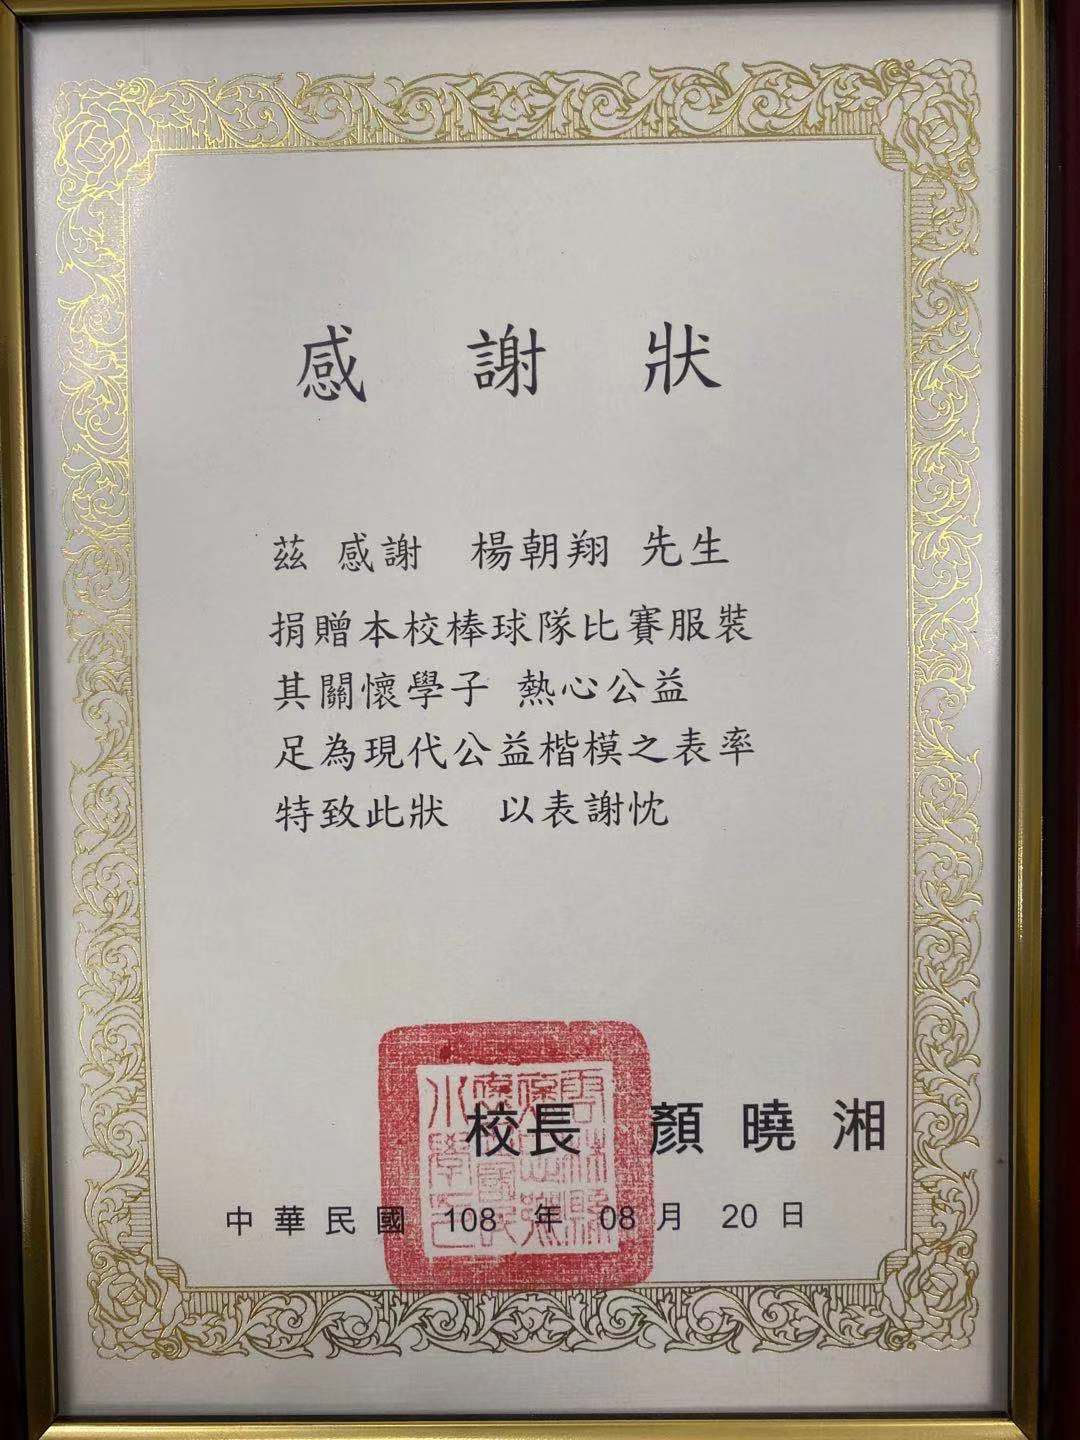 感謝狀
茲 感謝 楊朝翔 先生
捐贈本校棒球隊比賽服裝
其關懷學子 熱心公益
足為現代公益楷模之表率
特致此狀 以表謝忱
校長 顏曉湘
中華民國 108 年 08 月 20 日